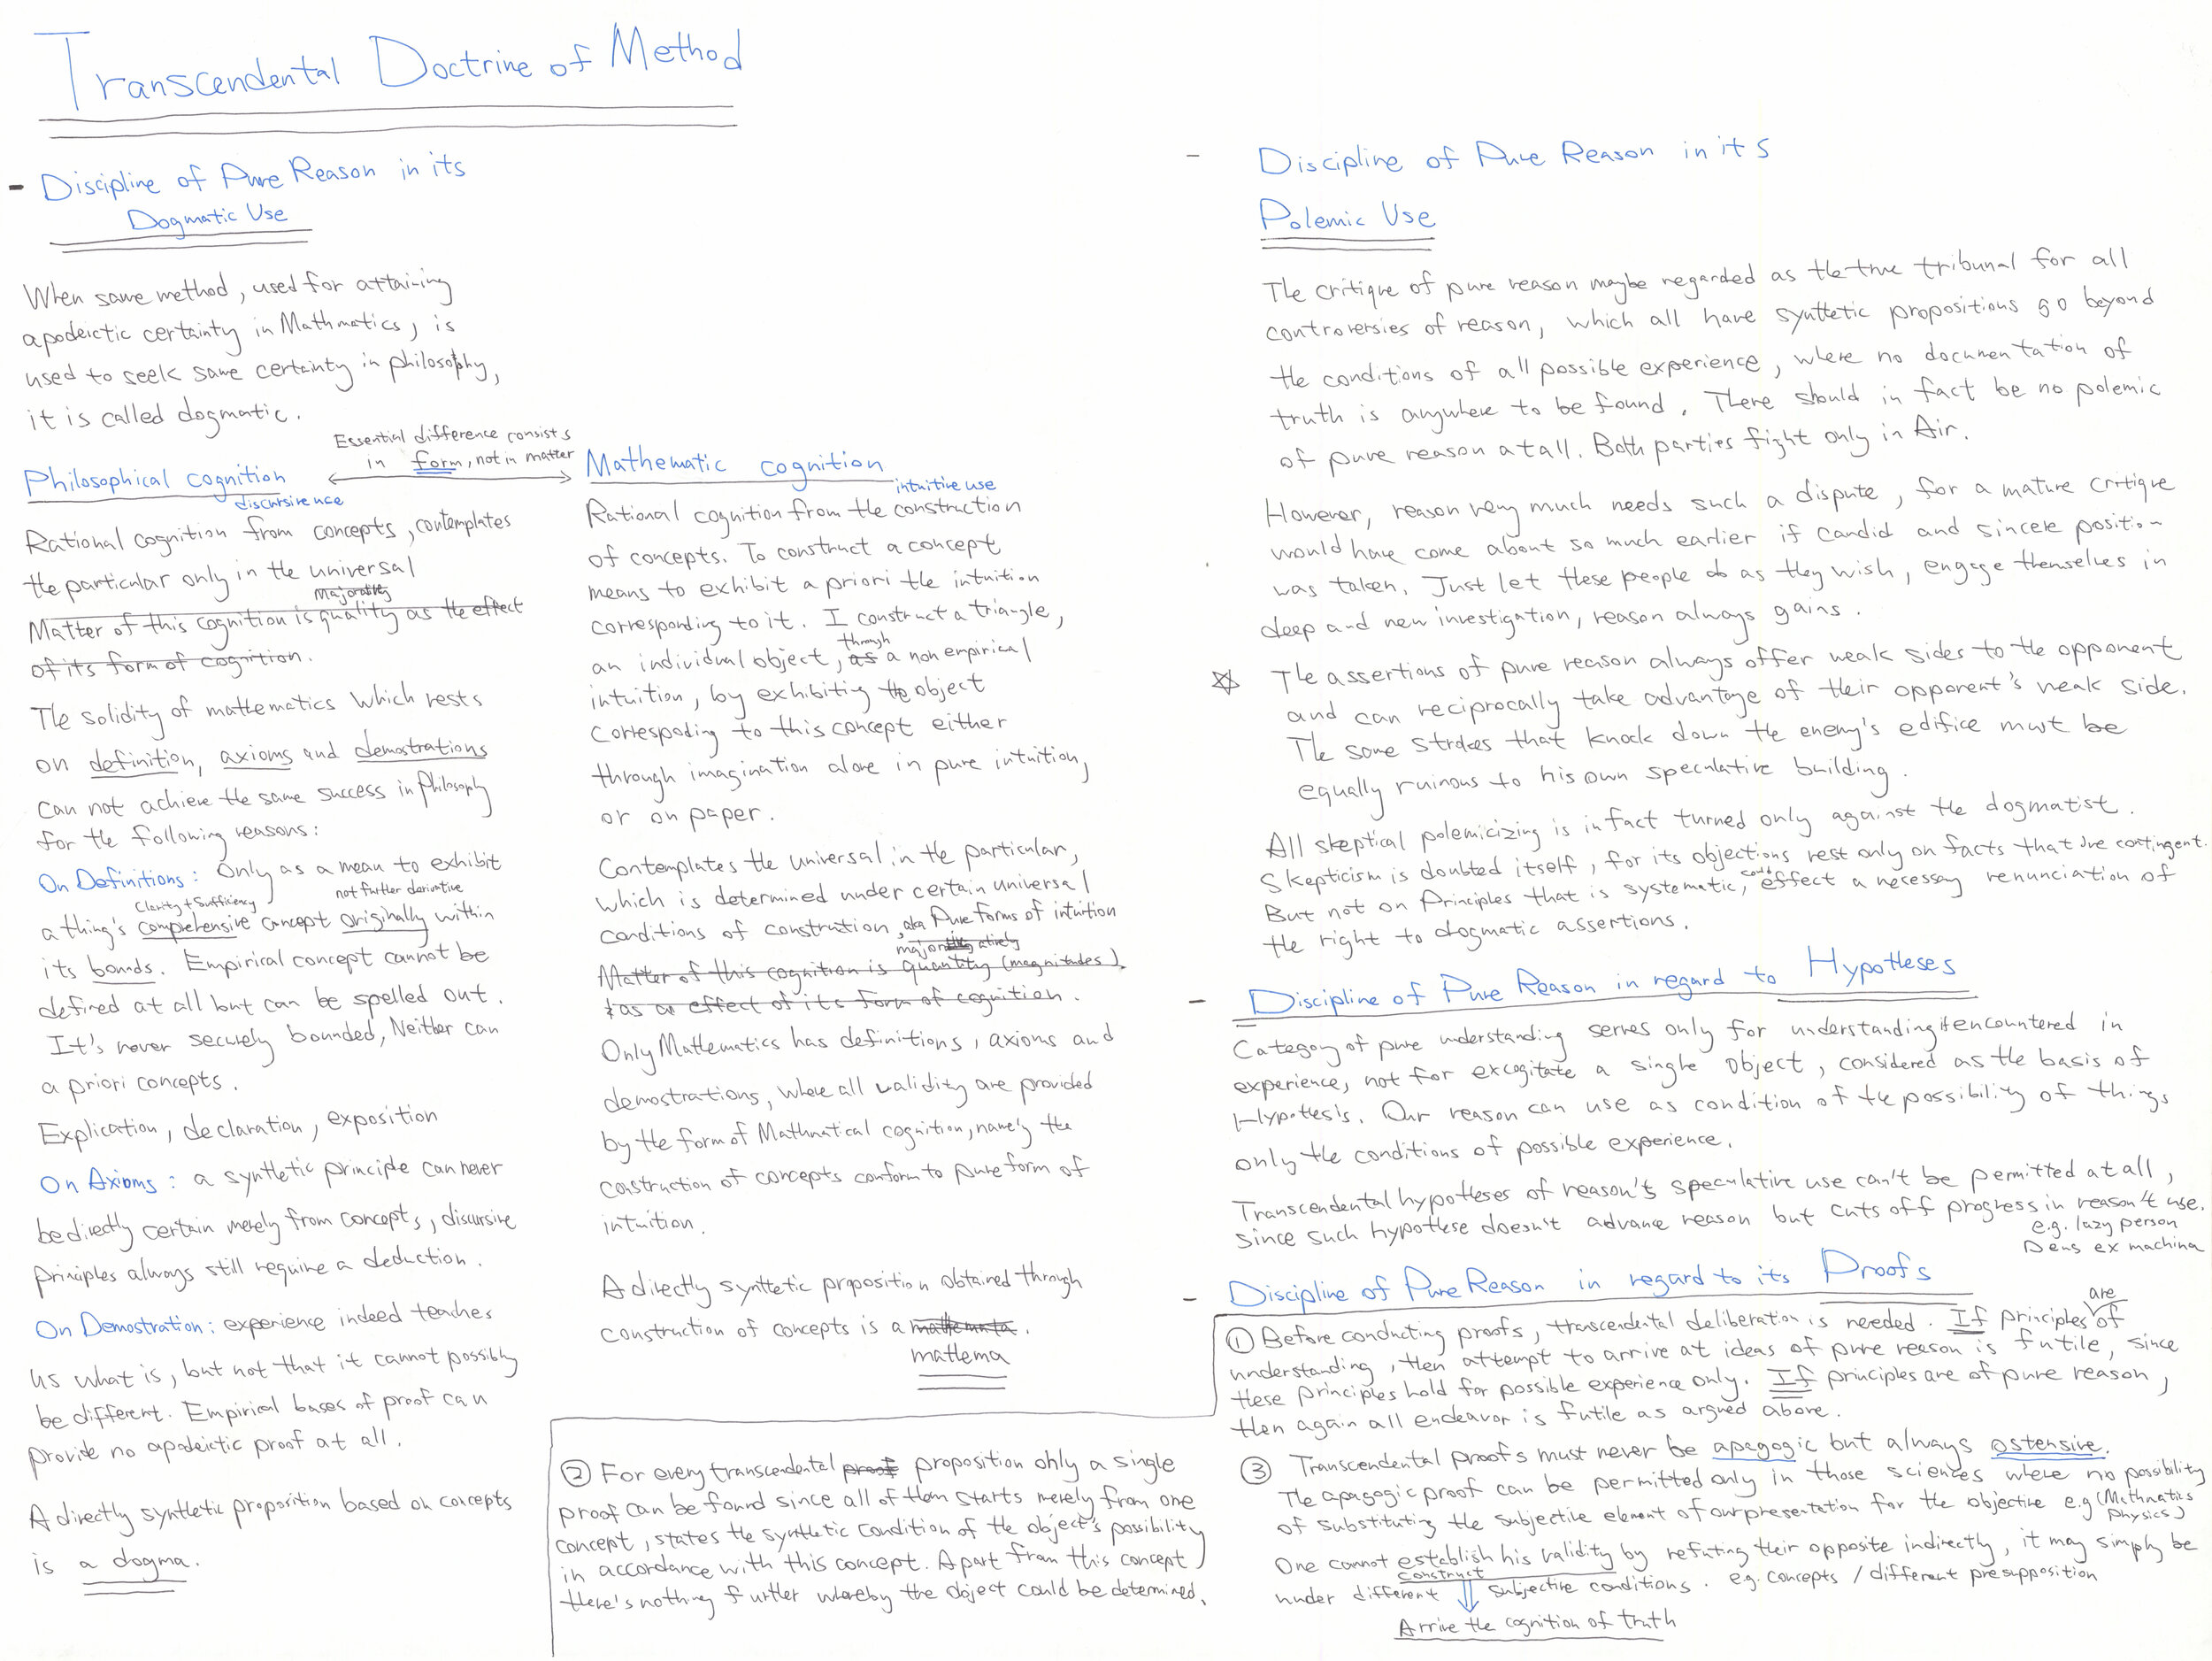 Transcendental Doctrine of Method
- Discipline of Pure Reason in its
Dogmatic Use
When same method, used for attaining
apodeictic certainty in Mathmatics, is
used to seek same certainty in philosophy,
it is called dogmatic.
Essential difference consists
in form, not in matter
Philosophical cognition
discursive use
Rational cognition from concepts, contemplates
the particular only in the universal
majoratively
Matter of this cognition is quality as the effect
of its form of cognition.
The solidity of mathematics which rests
on definition, axioms and demostrations
can not achieve the same success in Philosophy
for the following reasons:
On Definitions: Only as a mean to exhibit
Clarity + Sufficiency not further derivative
a thing's comprehensive concept originally within
its bounds. Empirical concept cannot be
defined at all but can be spelled out.
It's never securely bounded, Neither can
a priori concepts.
Explication, declaration, exposition
On Axioms: a synthetic principle can never
be directly certain merely from concepts, discursive
principles always still require a deduction.
On Demostration: experience indeed teaches
us what is, but not that it cannot possibly
be different. Empirical bases of proof can
provide no apodeictic proof at all.
A directly synthetic proposition based on concepts
is a dogma.
Mathematic cognition
intuitive use
Rational cognition from the construction
of concepts. To construct a concept
means to exhibit a priori the intuition
corresponding to it. I construct a triangle,
through
an individual object, as a non empirical
intuition, by exhibiting the object
correspoding to this concept either
through imagination alone in pure intuition,
or on paper.
Contemplates the universal in the particular,
which is determined under certain universal
conditions of constrution, aka Pure forms of intuition
Matter of this cognition is quantity (magnitudes)
as an effect of its form of cognition.
Only Mathematics has definitions, axioms and
demostrations, where all validity are provided
by the form of Mathmatical cognition, namely the
construction of concepts conform to pure form of
intuition.
A directly synthetic proposition obtained through
construction of concepts is a mathemata.
mathema
- Discipline of Pure Reason in its
Polemic Use
The critique of pure reason maybe regarded as the true tribunal for all
controversies of reason, which all have synthetic propositions go beyond
the conditions of all possible experience, where no documentation of
truth is anywhere to be found. There should in fact be no polemic
of pure reason at all. Both parties fight only in Air.
However, reason very much needs such a dispute, for a mature critique
would have come about so much earlier if candid and sincere position
was taken. Just let these people do as they wish, engage themselves in
deep and new investigation, reason always gains.
☆ The assertions of pure reason always offer weak sides to the opponent
and can reciprocally take advantage of their opponent's weak side.
The same strokes that knock down the enemy's edifice must be
equally ruinous to his own speculative building.
All skeptical polemicizing is in fact turned only against the dogmatist.
Skepticism is doubted itself, for its objections rest only on facts that are contingent.
could
But not on Principles that is systematic, effect a necessary renunciation of
the right to dogmatic assertions.
- Discipline of Pure Reason in regard to Hypotheses
Category of pure understanding serves only for understanding if encountered in
experience, not for excogitate a single object, considered as the basis of
Hypothesis. Our reason can use as condition of the possibility of things
only the conditions of possible experience.
Transcendental hypotheses of reason's speculative use can't be permitted at all,
since such hypothese doesn't advance reason but cuts off progress in reason't use.
e.g. lazy person
Deus ex machina
- Discipline of Pure Reason in regard to its Proofs
are
① Before conducting proofs, transcendental deliberation is needed. If principles of
understanding, then attempt to arrive at ideas of pure reason is futile, since
these principles hold for possible experience only. If principles are of pure reason,
then again all endeavor is futile as argued above.
② For every transcendental proof proposition only a single
proof can be found since all of them starts merely from one
concept, states the synthetic condition of the object's possibility
in accordance with this concept. Apart from this concept
there's nothing further whereby the object could be determined.
③ Transcendental proofs must never be apagogic but always ostensive.
The apagogic proof can be permitted only in those sciences where no possibility
of substituting the subjective element of our presentation for the objective e.g (Mathmatics
Physics)
One cannot establish his validity by refuting their opposite indirectly, it may simply be
construct
under different subjective conditions. e.g. concepts / different presupposition
Arrive the cognition of truth